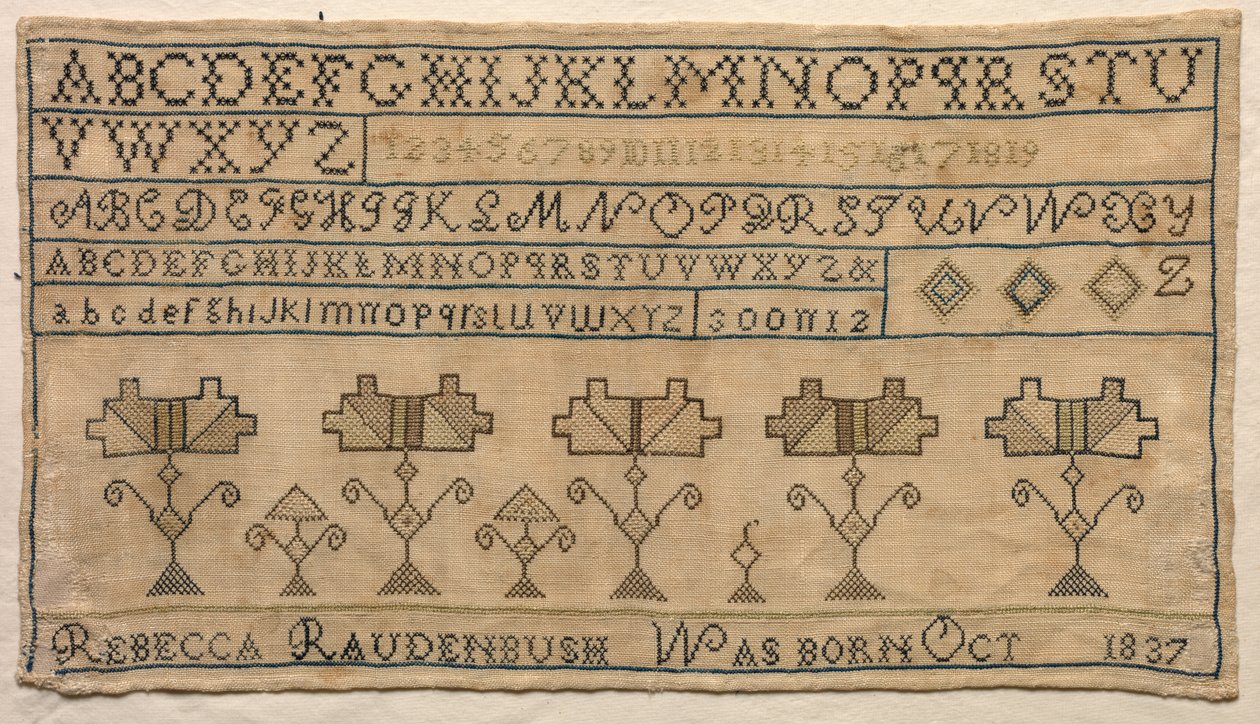 ABCDEFGHIJKLMNOPQRSTU
VWXYZ 12345678910111213141516171819
ABCDEFGHIJKLMNOPQRSTUVWXY
ABCDEFGHIJKLMNOPQRSTUVWXYZ& Z
abcdefghiJKlmnopqrstuvwxyz
REBECCA RAUDENBUSH WAS BORN OCT 1837